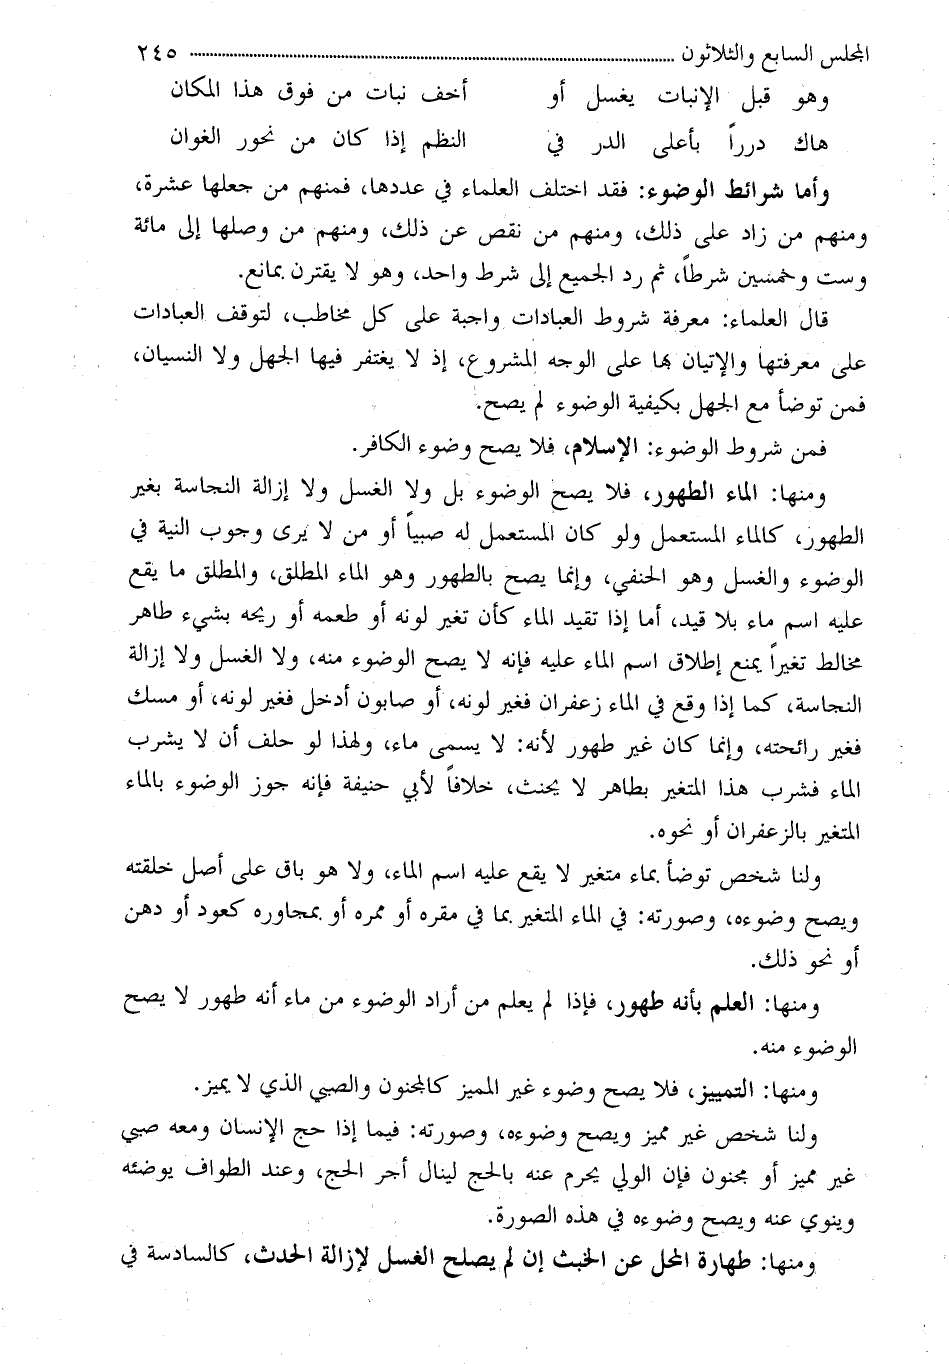 المجلس السابع والثلاثون ........................................................ ٢٤٥
وهو قبل الإنبات يغسل أو أخف نبات من فوق هذا المكان
هاك درراً بأعلى الدر في النظم إذا كان من نحور الغوان
وأما شرائط الوضوء: فقد اختلف العلماء في عددها، فمنهم من جعلها عشرة،
ومنهم من زاد على ذلك، ومنهم من نقص عن ذلك، ومنهم من وصلها إلى مائة
وست وخمسين شرطاً، ثم رد الجميع إلى شرط واحد، وهو لا يقترن بمانع.
قال العلماء: معرفة شروط العبادات واجبة على كل مخاطب، لتوقف العبادات
على معرفتها والإتيان بها على الوجه المشروع، إذ لا يغتفر فيها الجهل ولا النسيان،
فمن توضأ مع الجهل بكيفية الوضوء لم يصح.
فمن شروط الوضوء: الإسلام، فلا يصح وضوء الكافر.
ومنها: الماء الطهور، فلا يصح الوضوء بل ولا الغسل ولا إزالة النجاسة بغير
الطهور، كالماء المستعمل ولو كان المستعمل له صبياً أو من لا يرى وجوب النية في
الوضوء والغسل وهو الحنفي، وإنما يصح بالطهور وهو الماء المطلق، والمطلق ما يقع
عليه اسم ماء بلا قيد، أما إذا تقيد الماء كأن تغير لونه أو طعمه أو ريحه بشيء طاهر
مخالط تغيراً يمنع إطلاق اسم الماء عليه فإنه لا يصح الوضوء منه، ولا الغسل ولا إزالة
النجاسة، كما إذا وقع في الماء زعفران فغير لونه، أو صابون أدخل فغير لونه، أو مسك
فغير رائحته، وإنما كان غير طهور لأنه: لا يسمى ماء، ولهذا لو حلف أن لا يشرب
الماء فشرب هذا المتغير بطاهر لا يحنث، خلافاً لأبي حنيفة فإنه جوز الوضوء بالماء
المتغير بالزعفران أو نحوه.
ولنا شخص توضأ بماء متغير لا يقع عليه اسم الماء، ولا هو باق على أصل خلقته
ويصح وضوءه، وصورته: في الماء المتغير بما في مقره أو ممره أو بمجاوره كعود أو دهن
أو نحو ذلك.
ومنها: العلم بأنه طهور، فإذا لم يعلم من أراد الوضوء من ماء أنه طهور لا يصح
الوضوء منه.
ومنها: التمييز، فلا يصح وضوء غير المميز كالمجنون والصبي الذي لا يميز.
ولنا شخص غير مميز ويصح وضوءه، وصورته: فيما إذا حج الإنسان ومعه صبي
غير مميز أو مجنون فإن الولي يحرم عنه بالحج لينال أجر الحج، وعند الطواف يوضئه
وينوي عنه ويصح وضوءه في هذه الصورة.
ومنها: طهارة المحل عن الخبث إن لم يصلح الغسل لإزالة الحدث، كالسادسة في